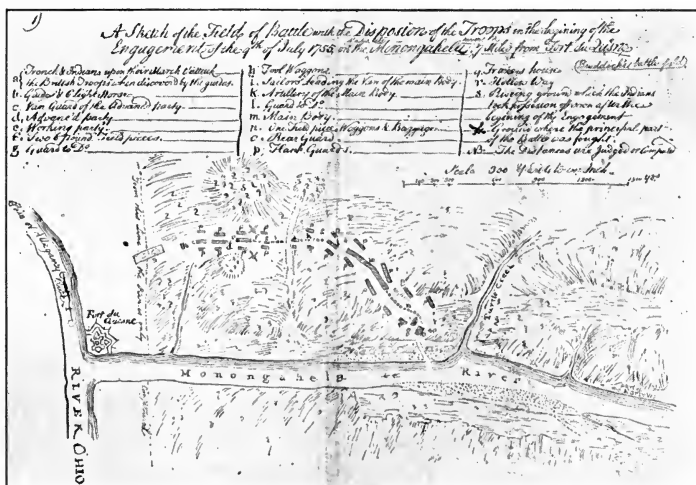 1)
A Sketch of the Field of Battle with the Disposition of the Troops in the beginning of the
Engagement of the 9th of July 1755 on the Monongahela 7 Miles from Fort Du Quesne
a. French & Indians upon their March to attack
the British Troops when discovered by the guides.
b. Guides & 6 Light Horse.
c. Van Guard of the Advanced party.
d. Advanc'd party.
e. Working party.
f. Two 6 Pound. Field pieces.
g. Guard to Do.
h. Tool Waggons.
i. Light Horse leading the Van of the main Body.
k. Artillery of the Main Body.
l. Guard to Do.
m. Main Body.
n. One Field piece Waggons & Baggage.
o. Rear Guard.
p. Flank Guards.
q. Frasers house
r. Hollow Way
s. Riseing ground which the Indians
took possession of soon after the
beginning of the Engagement
Ground where the principal part
of the Battle was fought.
NB. The Distances are Judged or Computed
Braddock's battle field
Scale 300 Yards to an Inch.
Fort du
Quesne
Monongahela River
Turtle Creek
RIVER OHIO